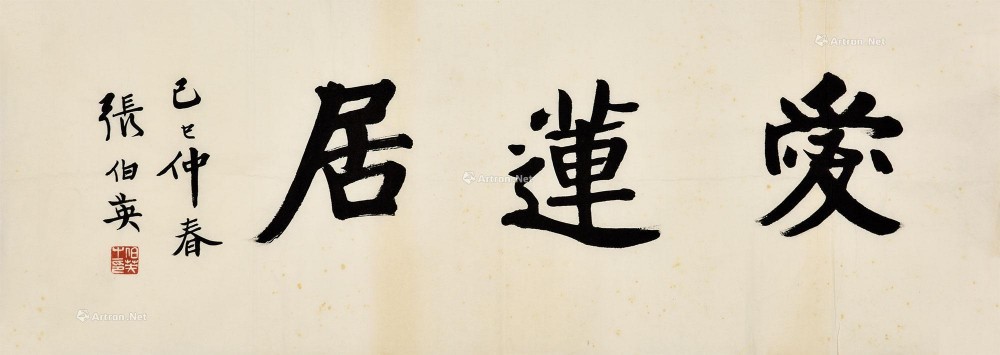 愛蓮居
己巳仲春
張伯英
Artron.Net
Artron.Net
Artron.Net
Artron.Net